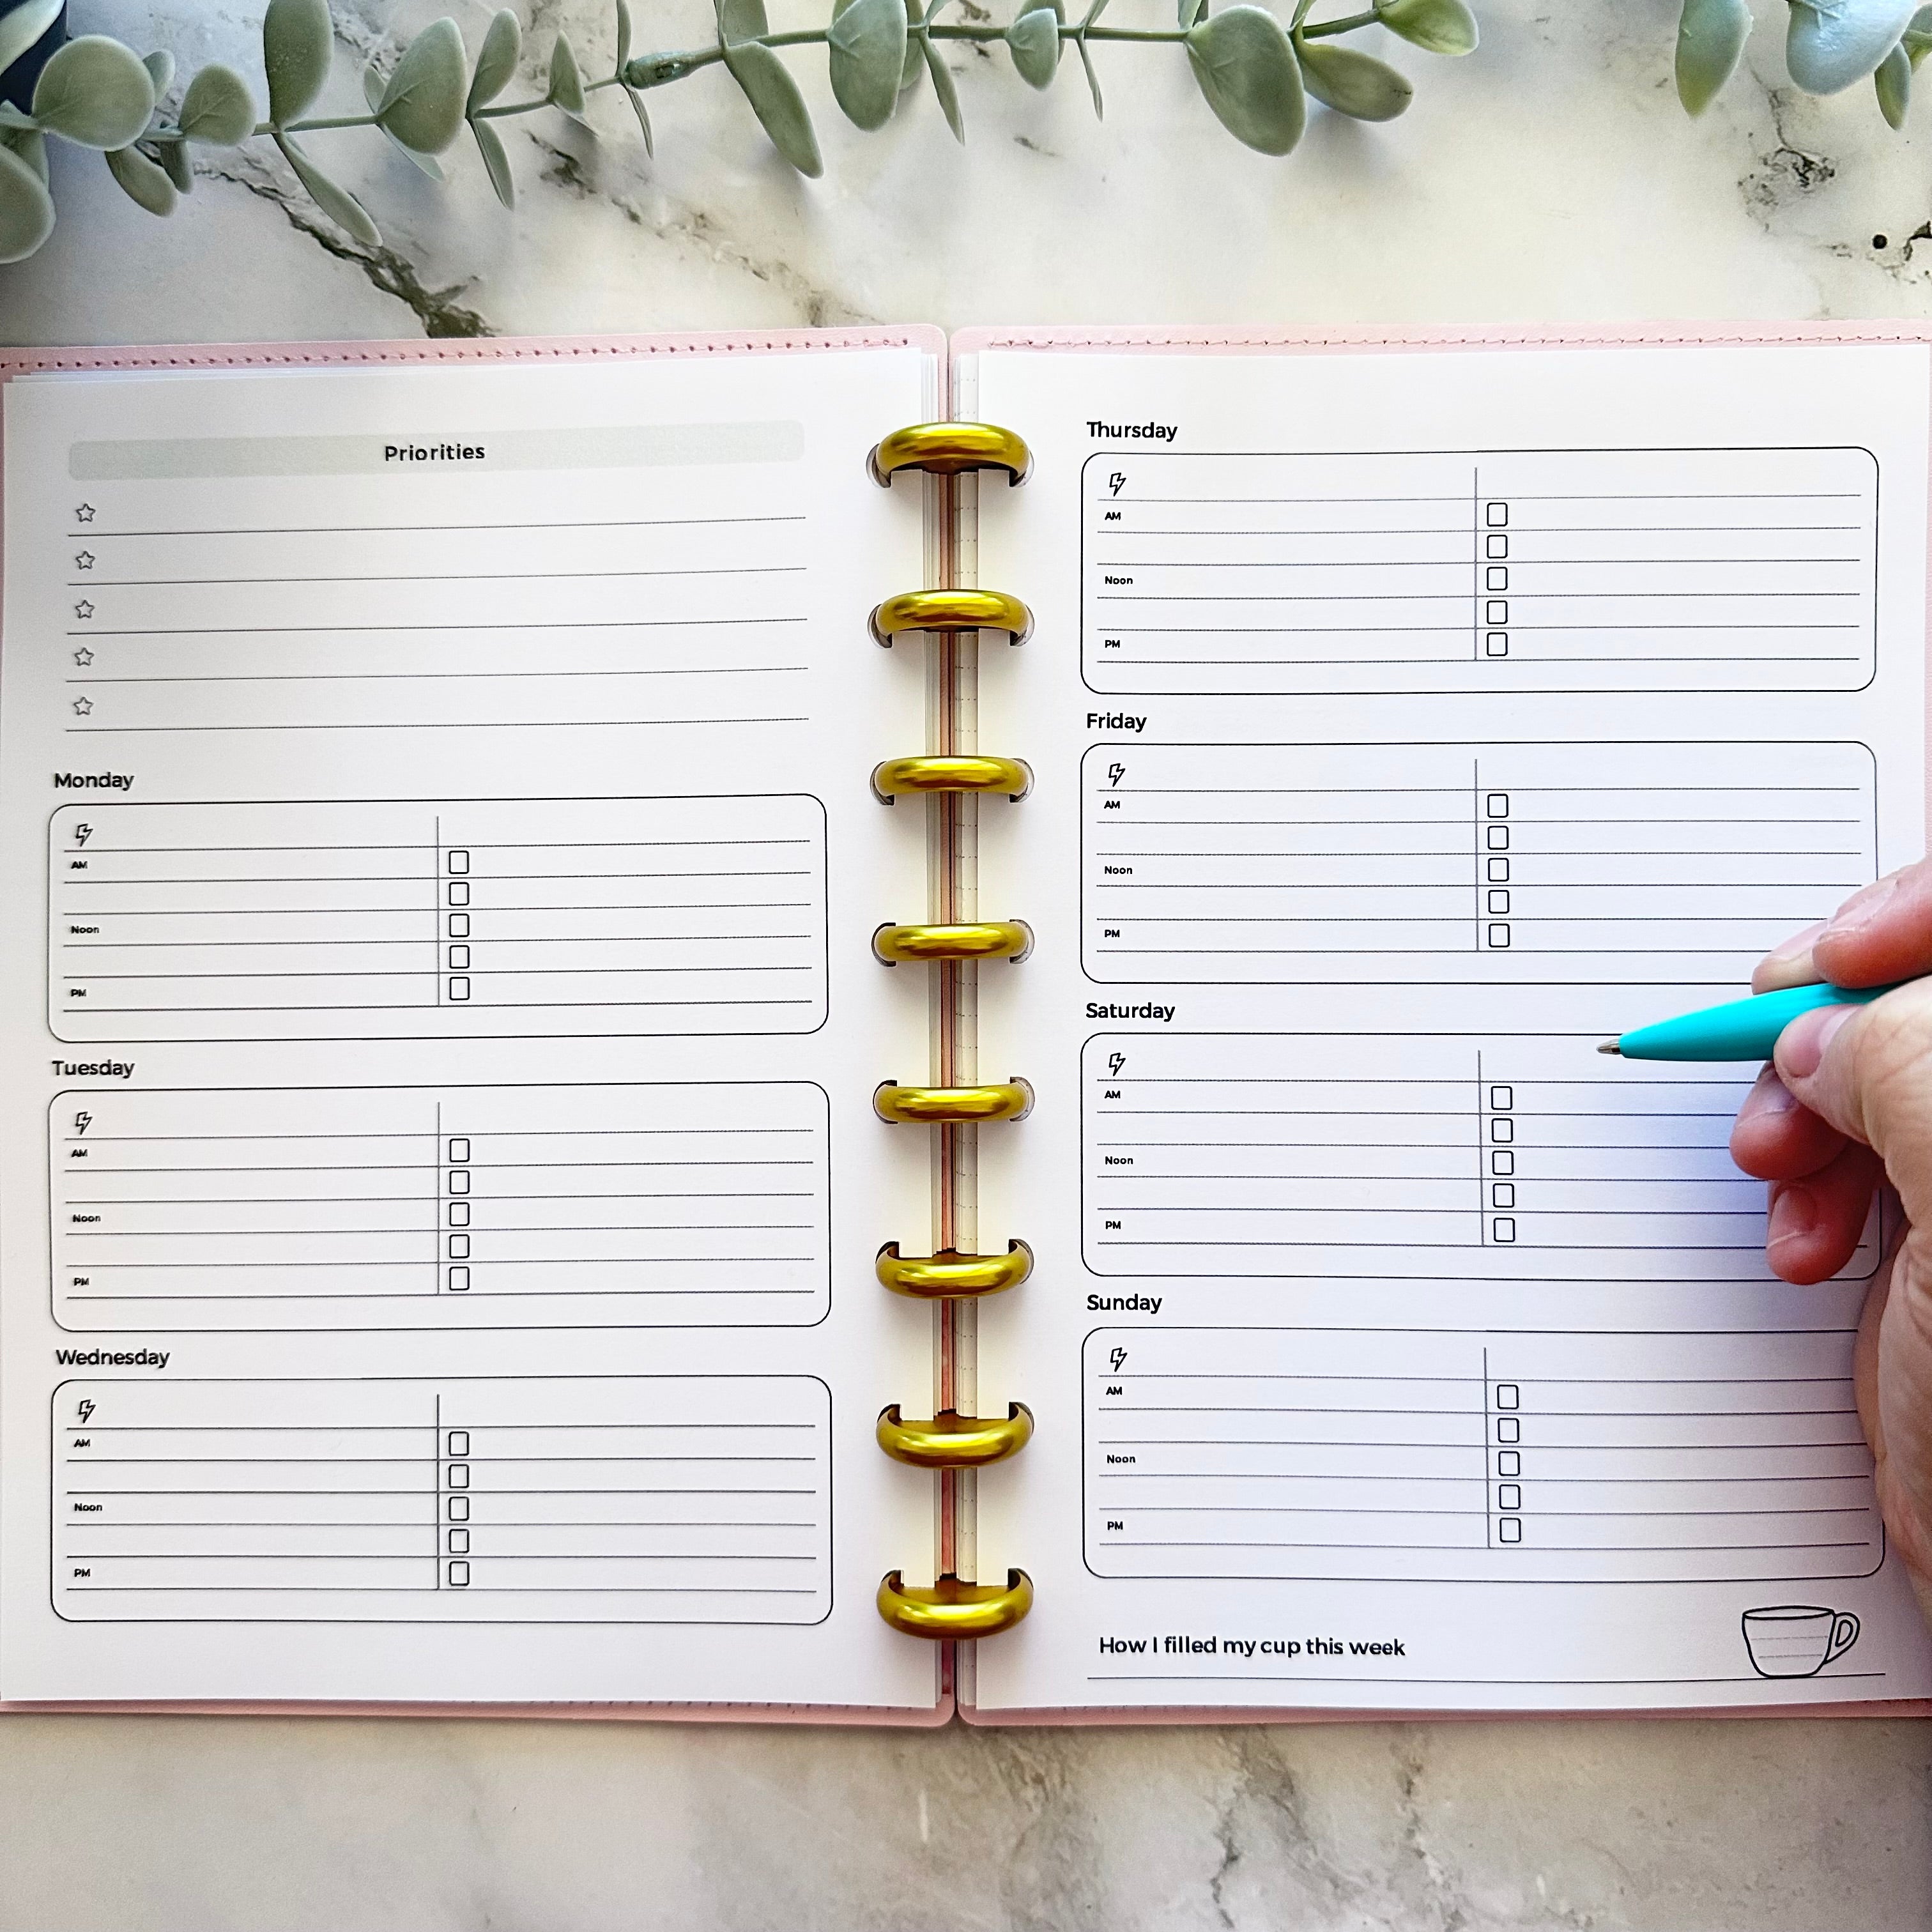 Priorities
Monday
AM
Noon
PM
Tuesday
AM
Noon
PM
Wednesday
AM
Noon
PM
Thursday
AM
Noon
PM
Friday
AM
Noon
PM
Saturday
AM
Noon
PM
Sunday
AM
Noon
PM
How I filled my cup this week